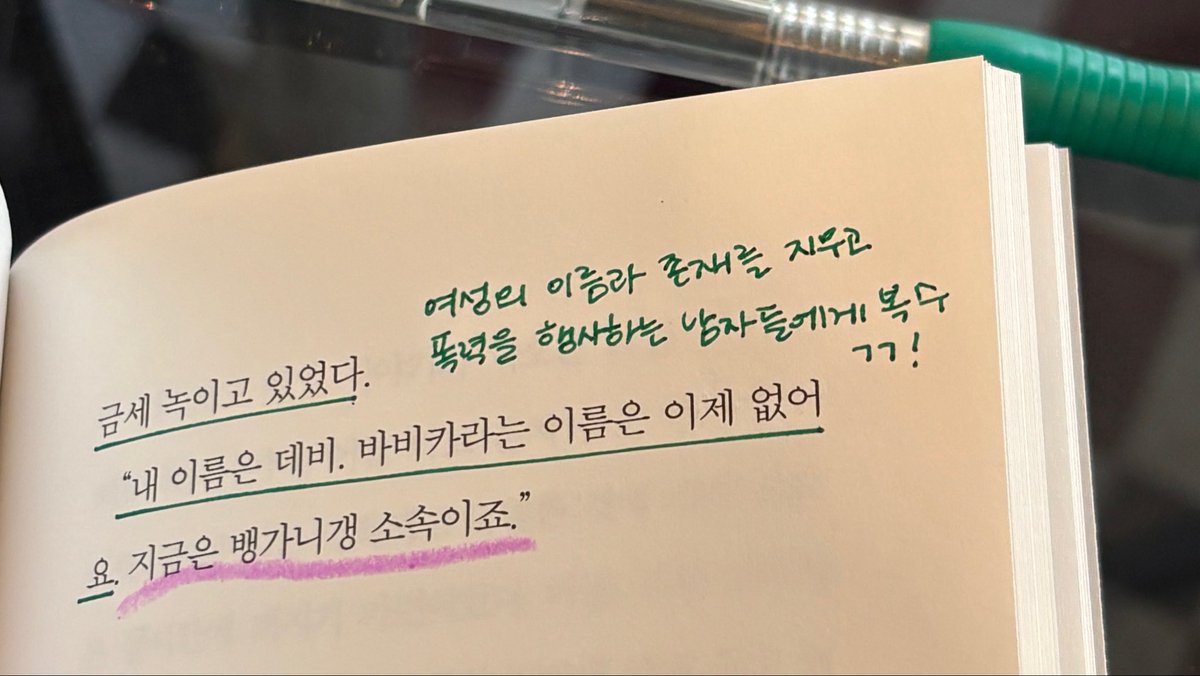 여성의 이름과 존재를 지우고
폭력을 행사하는 남자들에게 복수
ㄱㄱ!
금세 녹이고 있었다.
“내 이름은 데비. 바비카라는 이름은 이제 없어
요. 지금은 뱅가니갱 소속이죠.”